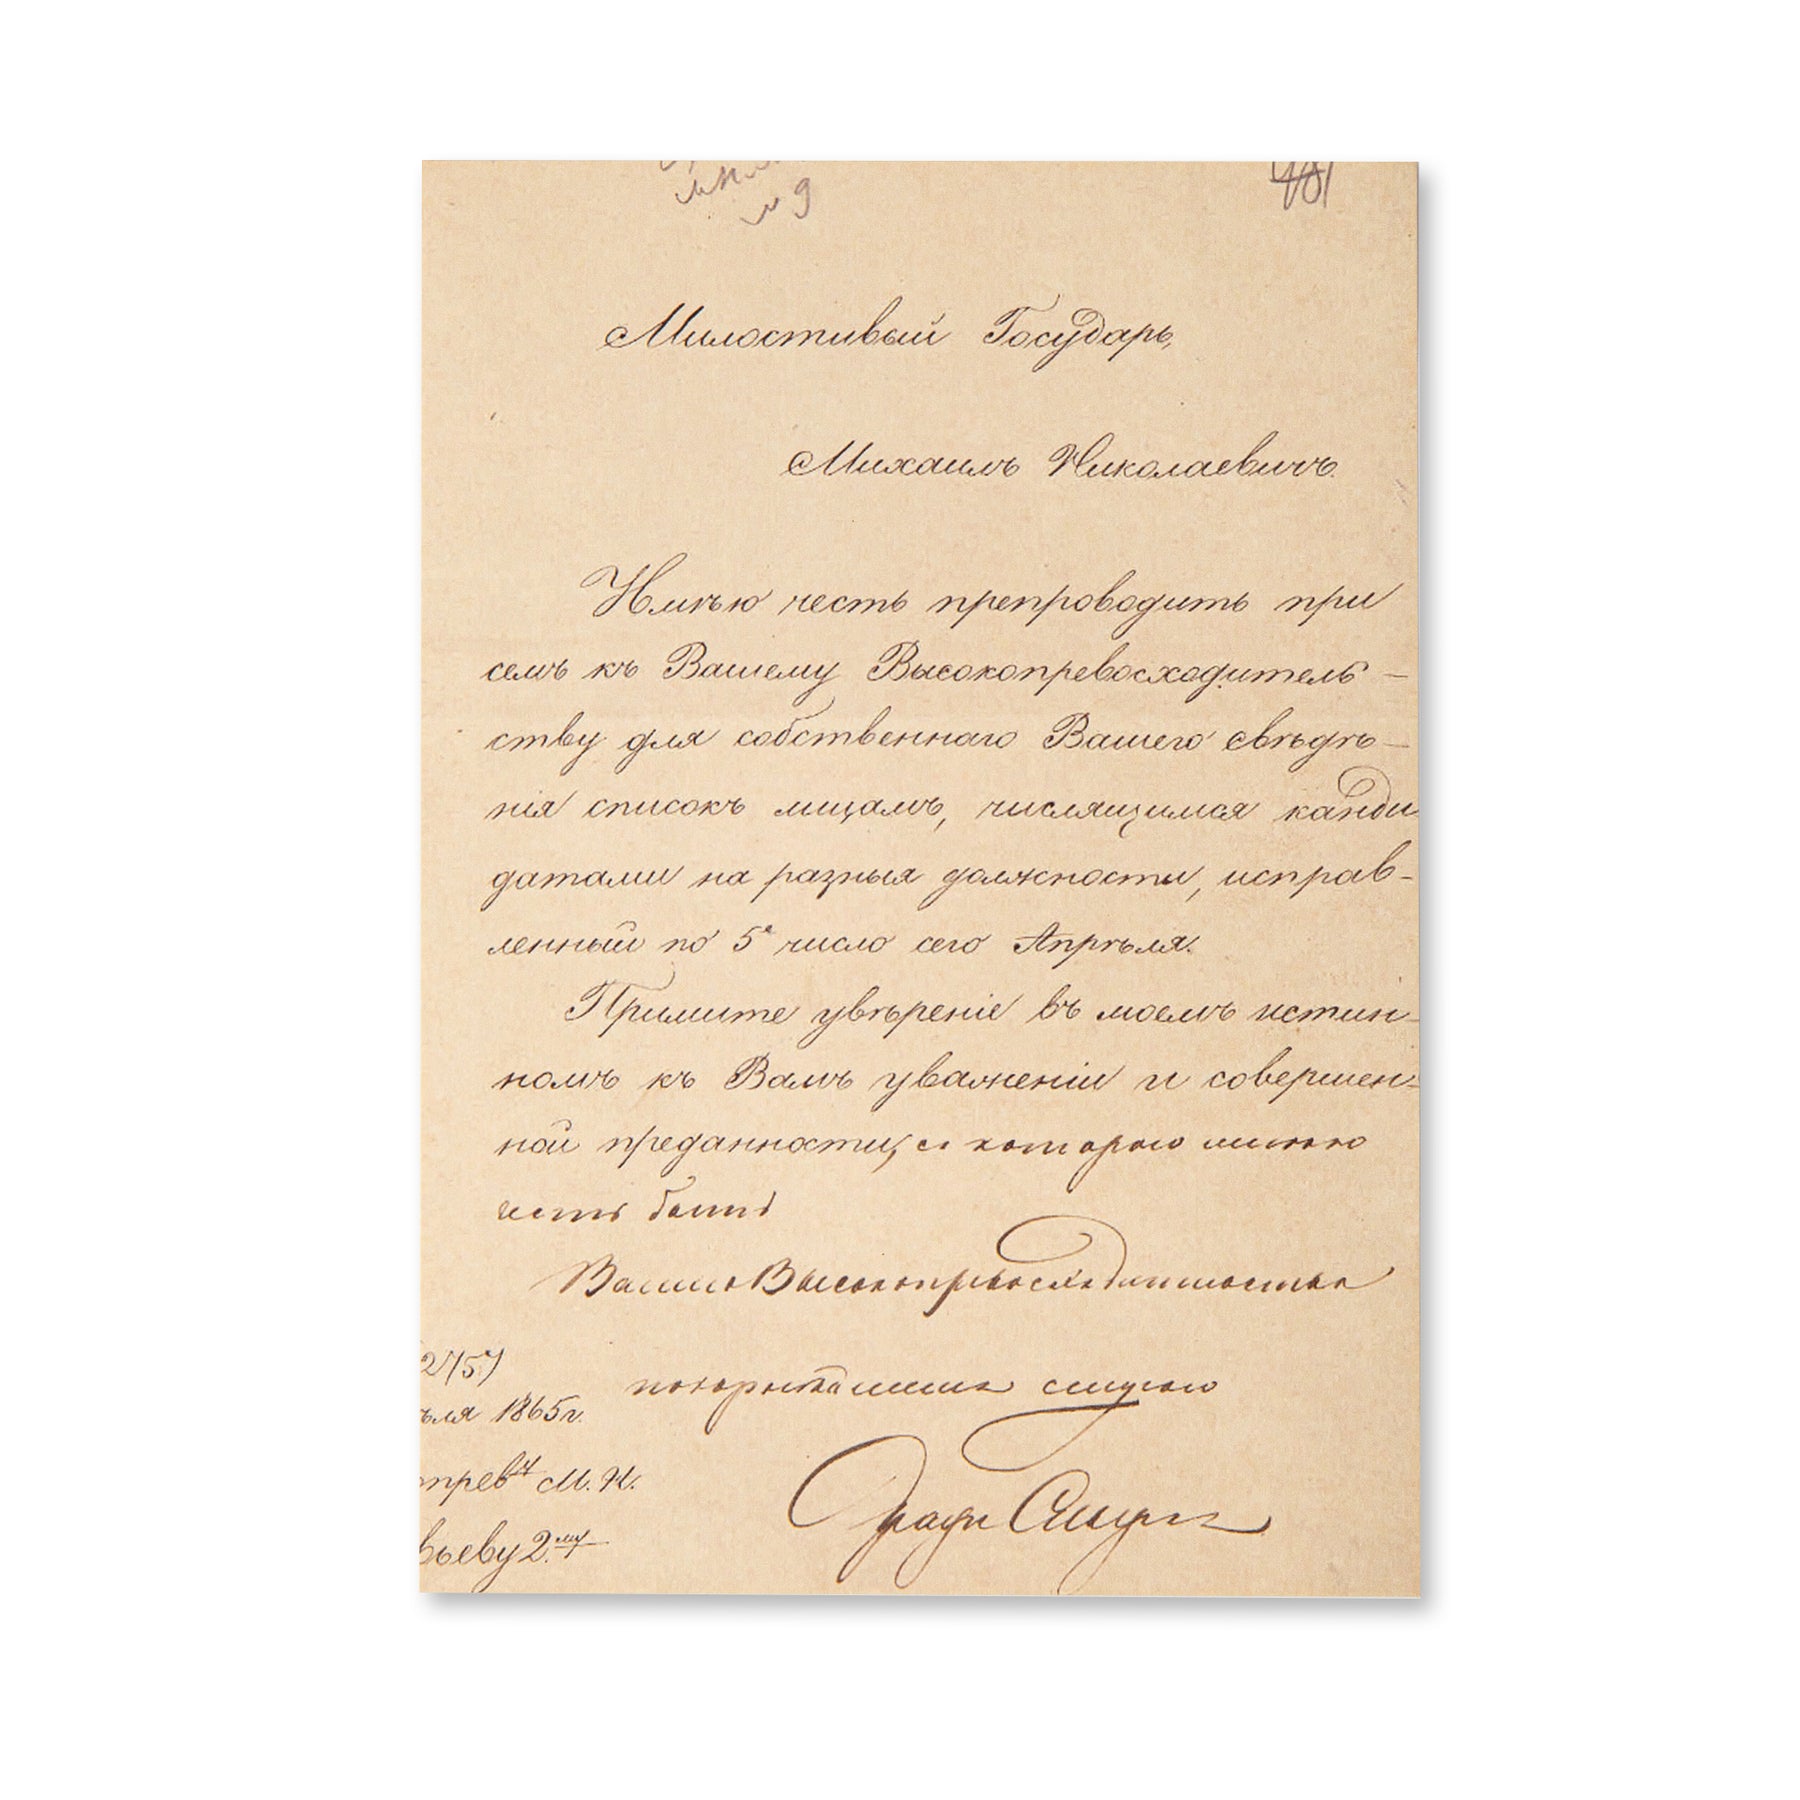 № 9
481
Милостивый Государь,
Михаилъ Николаевичъ.
Имѣю честь препроводить при
семъ къ Вашему Высокопревосходитель-
ству для собственнаго Вашего свѣдѣ-
нія списокъ лицамъ, числящимся канди
датами на разныя должности, исправ-
ленный по 5е число сего Апрѣля.
Примите увѣреніе въ моемъ истин-
номъ къ Вамъ уваженіи и совершен-
ной преданности, съ которою имѣю
честь быть
Вашего Высокопревосходительства
покорнѣйшимъ слугою
ѣля 1865 г.
опревву М. Н.
вьеву 2.му